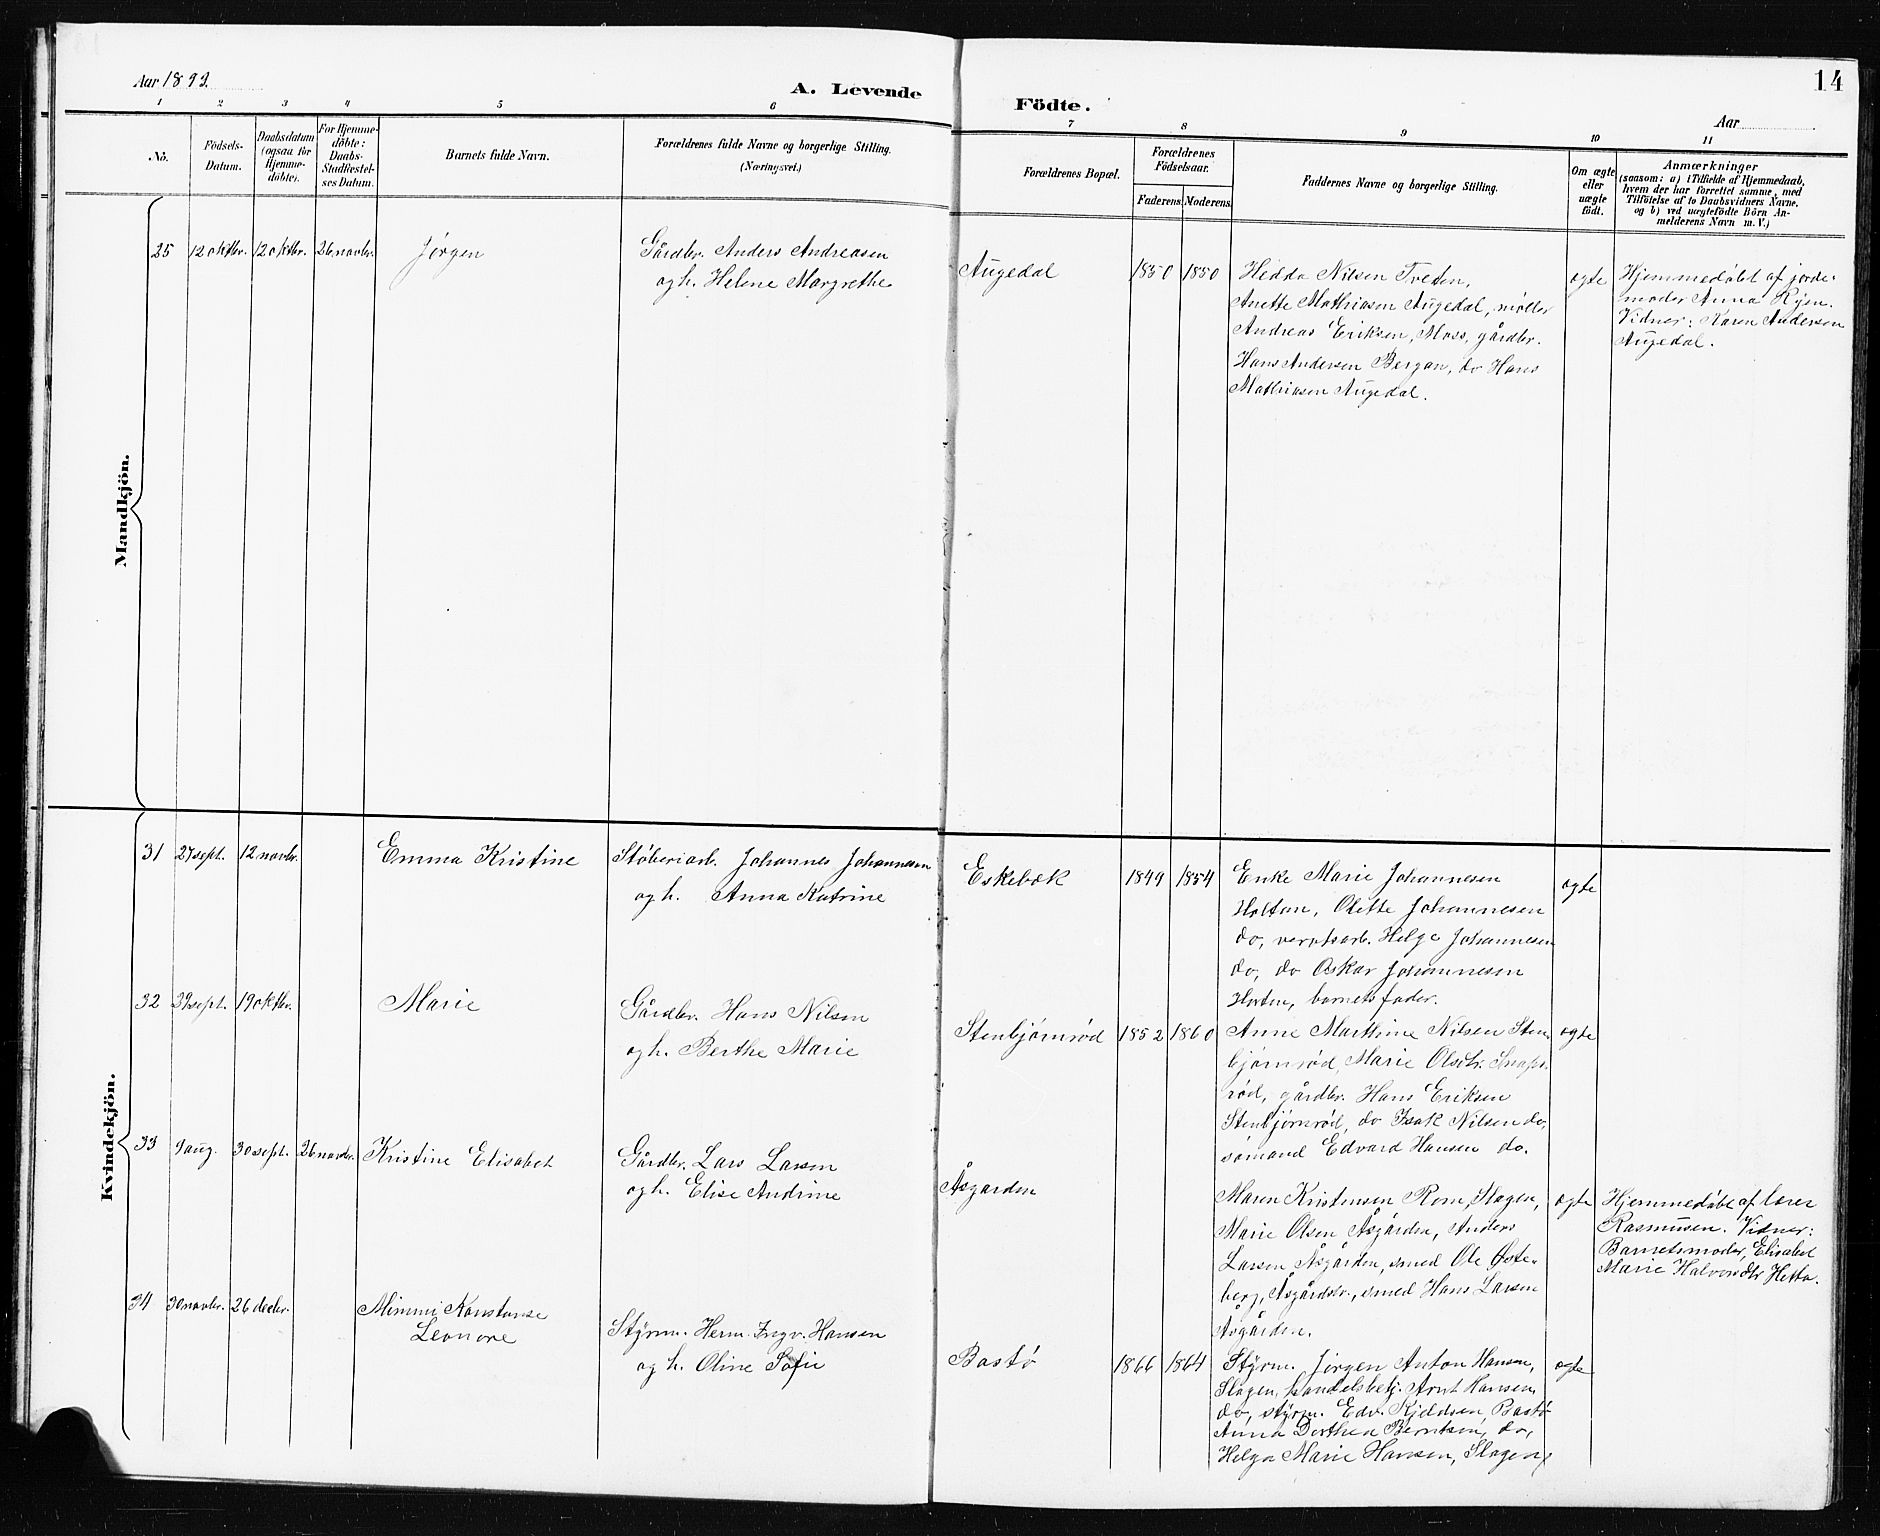 14
Aar 1899.
A. Levende Födte.
Aar
1 2 3 4 5 6 7 8 9 10 11
No.
Födsels-
Datum.
Daabsdatum
(ogsaa for
Hjemme-
döbte).
For Hjemme-
döbte:
Daabs-
Stadfæstel-
ses Datum.
Barnets fulde Navn.
Forældrenes fulde Navne og borgerlige Stilling.
(Næringsvei.)
Forældrenes Bopæl.
Forældrenes
Födselsaar.
Faderens. Moderens.
Faddernes Navne og borgerlige Stilling.
Om ægte
eller
uægte
födt.
Anmærkninger
(saasom: a) i Tilfælde af Hjemmedaab,
hvem der har forrettet samme, med
Tilföielse af to Daabsvidners Navne.
og b) ved uægtefödte Börn An-
melderens Navn m. V.)
Mandkjön.
25 12 oktbr. 12 oktbr. 26 novbr. Jørgen
Gårdbr. Anders Andreasen
og h. Helene Margrethe
Augedal 1850 1850
Hedda Nilsen Tveten,
Anette Mathiasen Augedal, møller
Andreas Eriksen, Moss, gårdbr.
Hans Andersen Bergan, do Hans
Mathiasen Augedal.
ægte
Hjemmedøbt af jorde-
moder Anna Ryen.
Vidner: Karen Andersen
Augedal.
Kvindekjön.
31 27 sept. 12 novbr. Emma Kristine
Støberiarb. Johannes Johannesen
og h. Anna Katrine
Eskebæk 1849 1854
Enke Marie Johannesen
Holtan, Olette Johannesen
do, verftsarb. Helge Johannesen
do, do Oskar Johannesen
Horten, barnets fader.
ægte
32 sept. 19 oktbr. Marie
Gårdbr. Hans Nilsen
og h. Berthe Marie
Stenbjørnrød 1852 1860
Anne Marthine Nilsen Sten-
bjørnrød, Marie Olsdtr. Snaps-
rød, gårdbr. Hans Eriksen
Stenbjørnrød, do Isak Nilsen do,
sømand Edvard Hansen do.
ægte
33 9 aug. 30 sept. 26 novbr. Kristine Elisabet
Gårdbr. Lars Larsen
og h. Elise Andrine
Åsgarden
Maren Kristensen Rom, Slagen,
Marie Olsen Åsgården, Anders
Larsen Åsgården, smed Ole Øste-
berg, Åsgårdstr., smed Hans Larsen
Åsgården.
ægte
Hjemmedøbt af lærer
Rasmussen. Vidner:
Barnetsmoder, Elisabet
Marie Halvorsdtr Hetta.
34 30 novbr. 26 decbr. Mimmi Konstanse
Leonore
Styrm. Herm. Ingv. Hansen
og h. Oline Sofie
Bastø 1866 1864
Styrm. Jørgen Anton Hansen,
Slagen, handelsbetj. Arnt Hansen,
do, styrm. Edv. Kjeldsen, Bastø
Anna Dorthea Berntsen, do,
Helga Marie Hansen, Slagen,
ægte